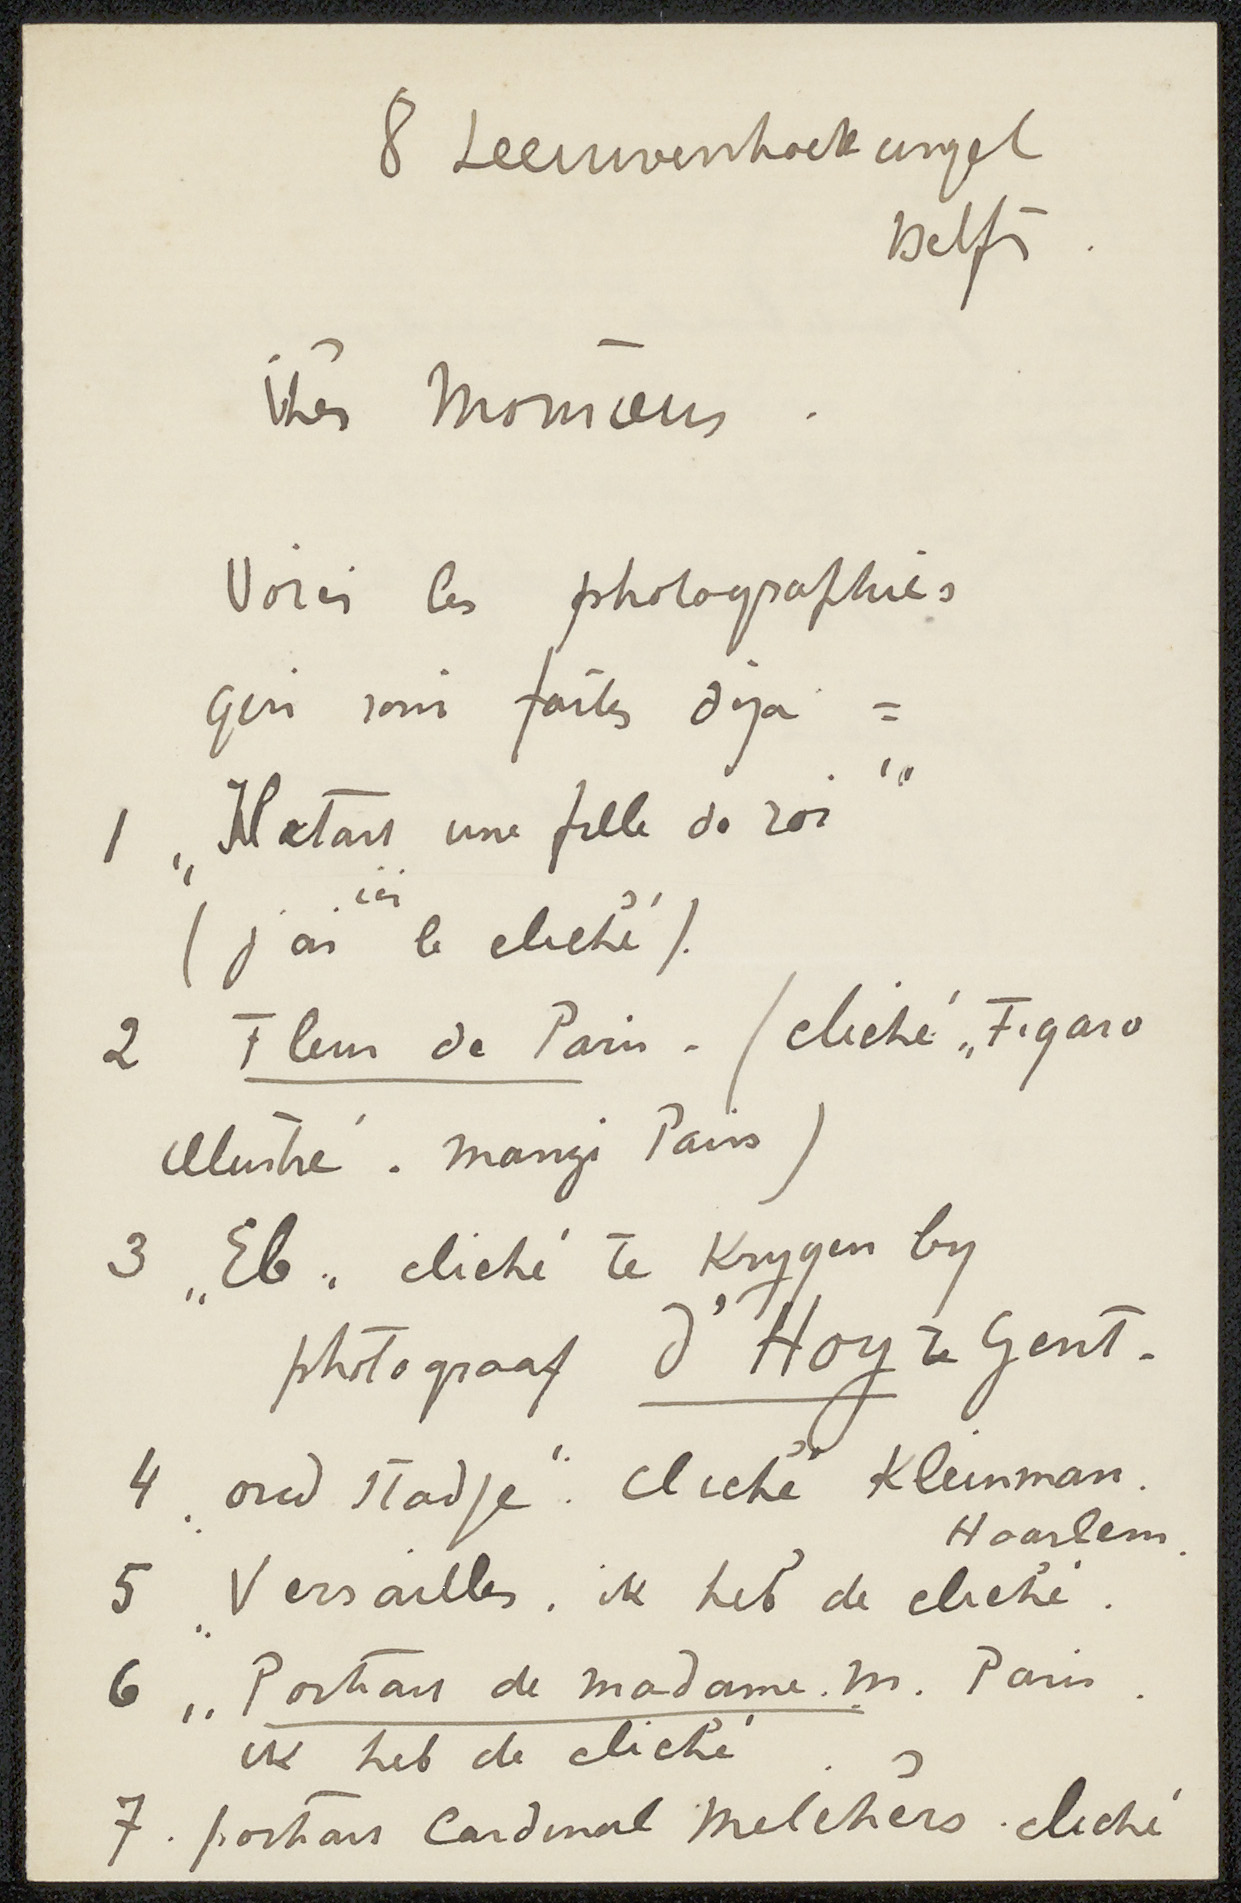 8 Leeuwenhoeksingel
Delft.
Cher Monsieur.
Voici les photographies
qui sont faites déja =
1 „Il etait une fille de roi"
ici
(j'ai le cliché).
2 Fleur de Paris - (cliché „Figaro
illustré. Manzi Paris)
3 „Eb„ cliché te Krygen by
photograaf d'Hoy te Gent -
4 „oud stadje". cliché Kleinman.
Haarlem.
5 „Versailles. ik heb de cliché.
6 „Portrait de Madame. M. Paris.
ik heb de cliché
7. portrait Cardinal Melchers. cliché